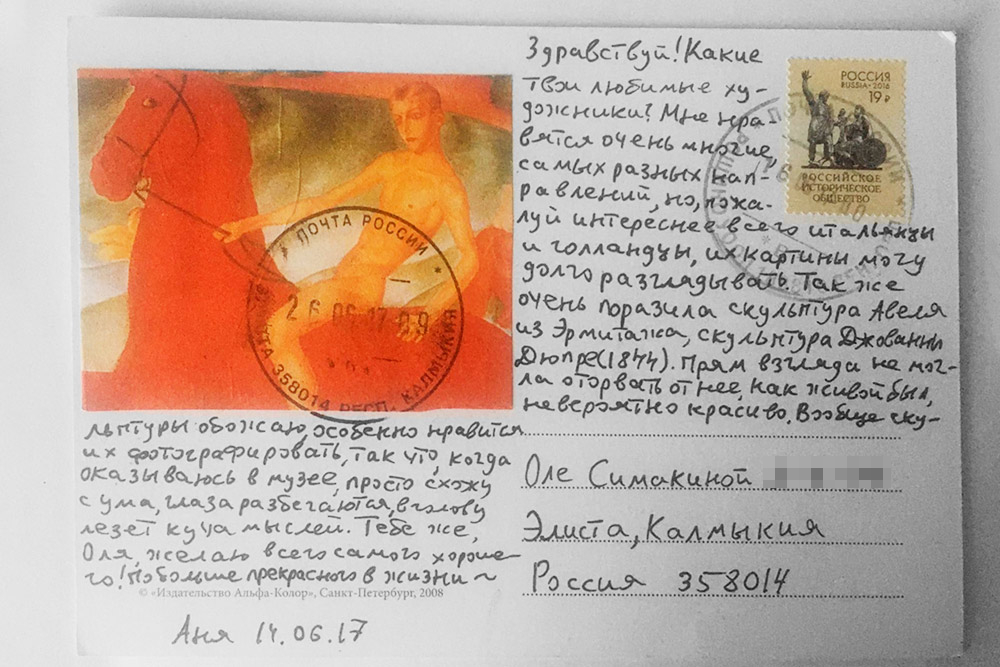 Здравствуй! Какие
твои любимые ху-
дожники? Мне нра-
вятся очень многие,
самых разных нап-
равлений, но, пожа-
луй интереснее всего итальянцы
и голландцы, их картины могу
долго разглядывать. Так же
очень поразила скульптура Авеля
из Эрмитажа, скульптура Джованни
Дюпре(1844). Прям взгляда не мог-
ла оторвать от неё, как живой был,
невероятно красиво. Вообще ску-
льптуры обожаю, особенно нравится
их фотографировать, так что, когда
оказываюсь в музее, просто схожу
с ума, глаза разбегаются, в голову
лезет куча мыслей. Тебе же,
Оля, желаю всего самого хороше-
го! Побольше прекрасного в жизни ~
© «Издательство Альфа-Колор», Санкт-Петербург, 2008
Аня 14.06.17
РОССИЯ
RUSSIA·2016
19 ₽
РОССИЙСКОЕ
ИСТОРИЧЕСКОЕ
ОБЩЕСТВО
ПОЧТА РОССИИ
26 06 17 09
358014 РЕСП. КАЛМЫКИЯ
Оле Симакиной
Элиста, Калмыкия
Россия 358014